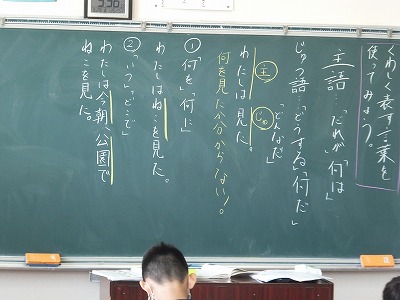 くわしく表す言葉を
使ってみよう。
主語「だれが」「何は」
じゅつ語「どうする」「何だ」
「どんなだ」
主 じゅ
わたしは見た。
何を見たか分からない!
①「何を」「何に」
わたしはねこを見た。
②「いつ」「どこで」
わたしは今朝、公園で
ねこを見た。